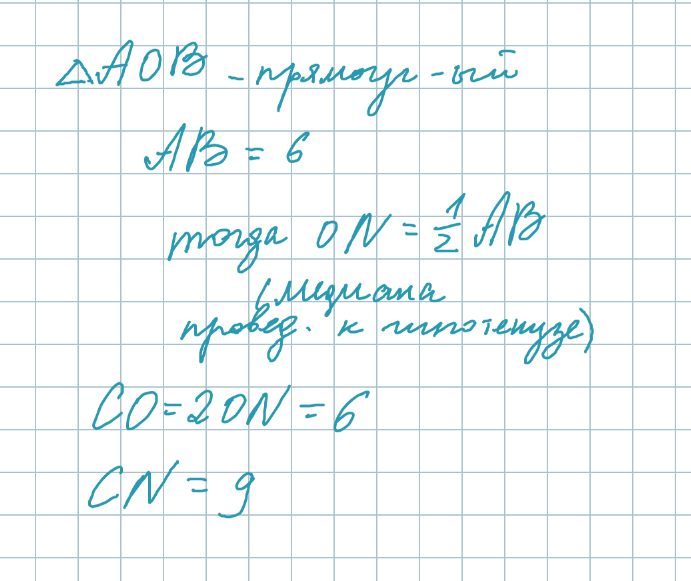 △AOB - прямоуг-ый
AB = 6
тогда ON = 1/2 AB
(медиана
провед. к гипотенузе)
CO = 2ON = 6
CN = 9